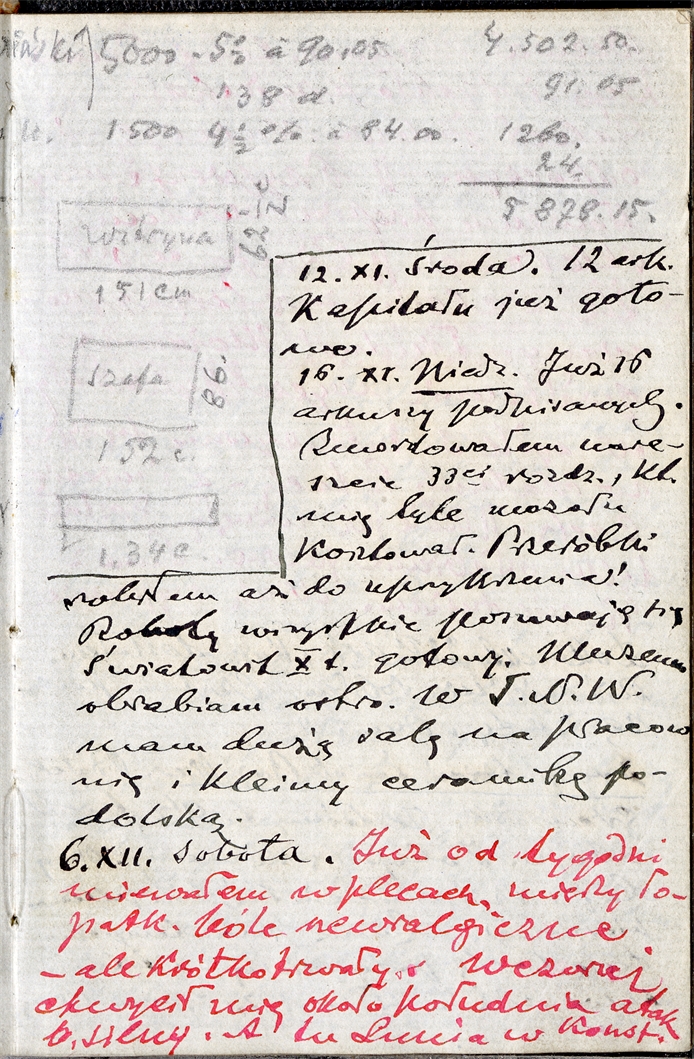 5000 - 5% à 90,05 4.502.50.
138 d. 91.05
1500 4½ % à 84.00. 1260.
24.
5 878.15.
Witryna
151 cm
Szafa 86.
152 c.
1,34 c.
12. XI. Środa. 12 ark.
Kapitału już goto-
we.
16. XI. Niedz. Już 16
arkuszy podpisanych.
Zmordowałem nare-
szcie 33ci rozdz., kt.
mię tyle mozołu
kosztował. Przeróbki
robiłem aż do uprzykrzenia!
Roboty wszystkie posuwają się
Światowit X t. gotowy. Muzeum
obrabiam ostro. W T.N.W.
mam dużą salę na pracow
nię i kleimy ceramikę po-
dolską.
6. XII. Sobota. Już od tygodni
miewałem w plecach, między ło-
patk. bóle newralgiczne
– ale krótkotrwały. Wczoraj
chwycił mię około południa atak
b. silny. A tu Lunia w Konst.